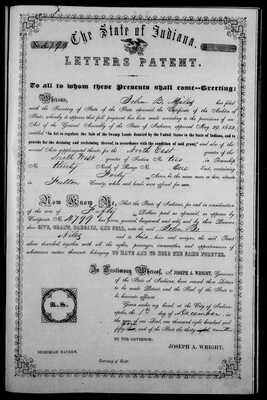 The State of Indiana.
LETTERS PATENT.
To all to whom these Presents shall come—Greeting:
Whereas, John B. has filed
with the Secretary of State of the State aforesaid the Certificate of the Auditor of
State, whereby it appears that full payment has been made according to the provisions of an
Act of the General Assembly of the State of Indiana, approved May 29, 1852,
entitled "An act to regulate the Sale of the Swamp Lands donated by the United States to the State of Indiana, and to
provide for the draining and reclaiming thereof, in accordance with the condition of said grant," and also of the
for the North East
North West quarter of Section No. two in Township
No. thirty North of Range No. One East, containing
Forty Acres, be the same more or less, situate in
Fulton County, which said lands were offered for sale.
Now Know Ye, That the State of Indiana, for and in consideration
of the sum of Dollars paid as aforesaid, as appears by
Certificate No. has
GIVE, GRANT, BARGAIN, AND SELL, unto the said John B.
and to heirs and assigns, the said Tract
above described, together with all the rights, privileges, immunities and appurtenances of
whatsoever nature thereunto belonging TO HAVE AND TO HOLD THE SAME FOREVER.
In Testimony Whereof, I, JOSEPH A. WRIGHT, Governor
of the State of Indiana, have caused these Letters
to be made Patent, and the Seal of the State to
be hereunto affixed.
Given under my hand, at the City of Indianapolis,
the 1st day of December in
the year of our Lord, one thousand eight hundred and
fifty and of the State the thirty
BY THE GOVERNOR:
JOSEPH A. WRIGHT.
NEHEMIAH HAYDEN,
Secretary of State.